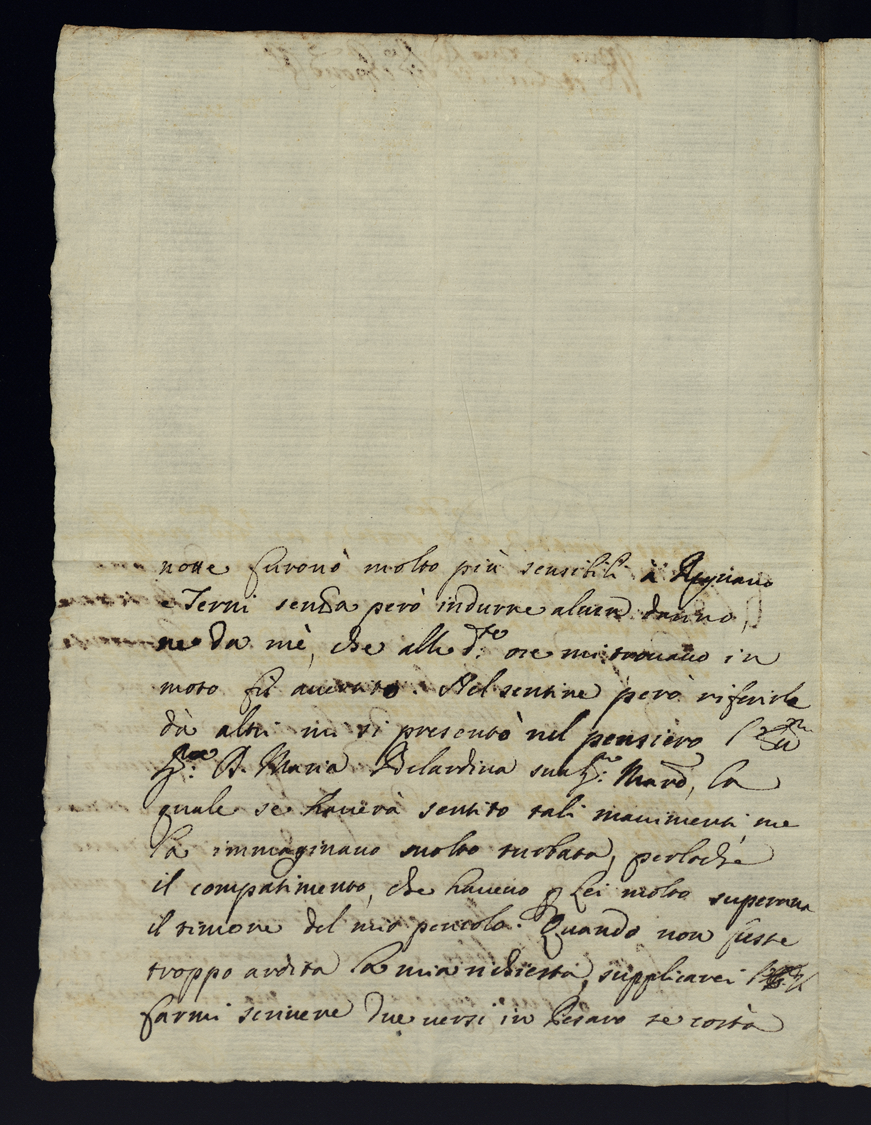 notte furonò molto più sensibili à
e Terni senza però indurne alcun danno,
ne da mè, che alle d.te ore mi trovavo in
moto fù avertito. Nel sentire però riferirle
dà altri mi si presentò nel pensiero
D. Maria Belardina sua Sig.ra Mard., la
quale se haverà sentito tali movimenti me
la immaginavo molto turbata, perloche
il compatimento, che havevo p Lei molto superava
il timore del mio pericolo. Quando non fusse
troppo ardita la mia richiesta, supplicarei
farmi scrivere due versi in Pesaro se costà